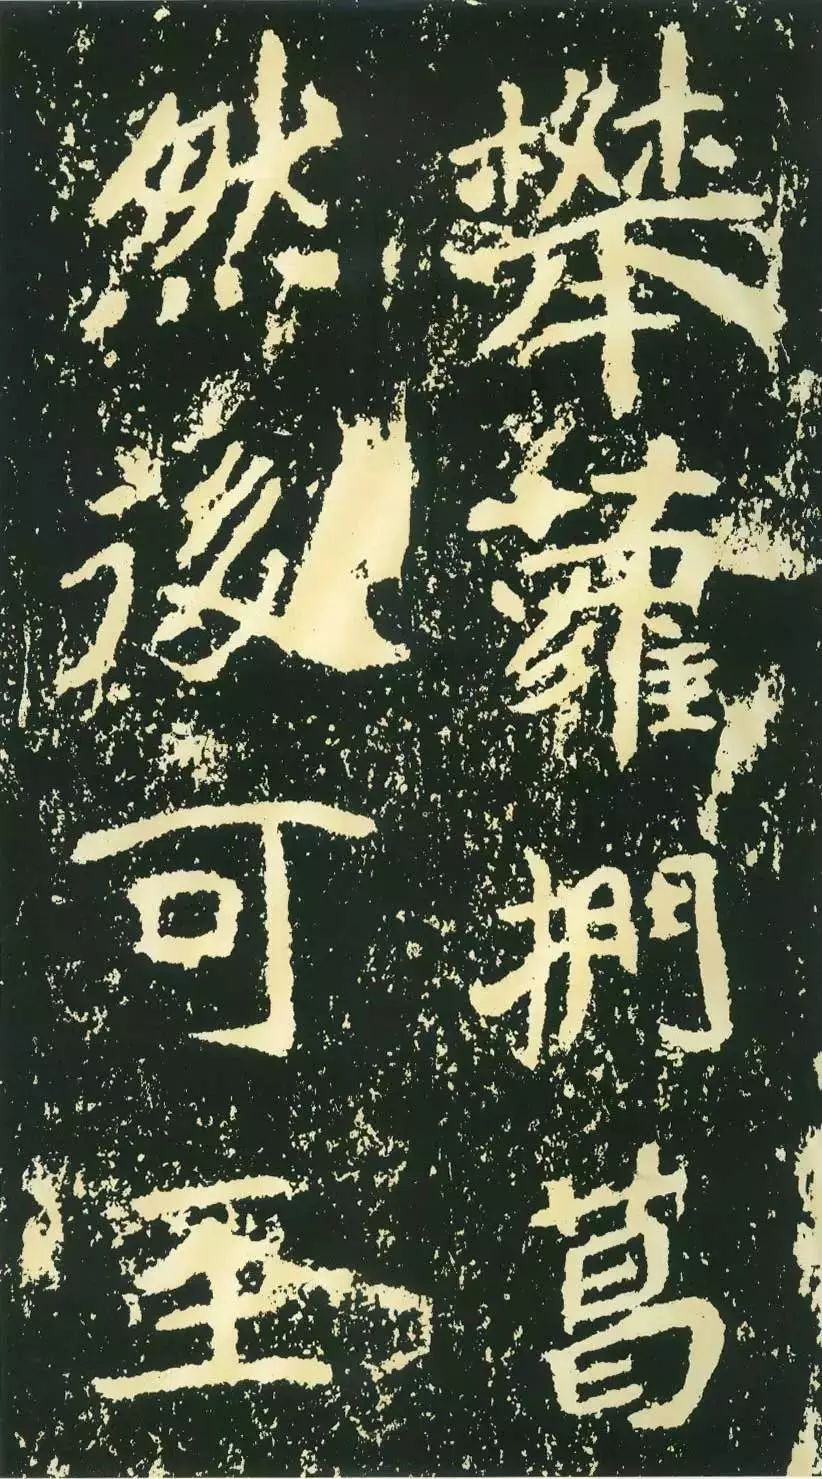 攀蘿捫葛
然後可至